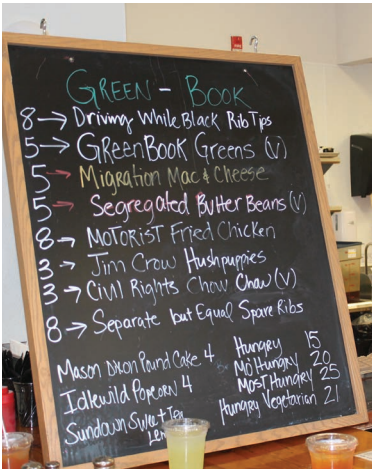 GREEN - BOOK
8 → Driving While Black Rib Tips
5 → GReenBook Greens (V)
5 → Migration Mac & Cheese
5 → Segregated Butter Beans (V)
8 → MOTORIST Fried Chicken
3 → Jim Crow Hushpuppies
3 → Civil Rights Chow Chow (V)
8 → Separate but Equal Spare Ribs
Mason Dixon Pound Cake 4
Idlewild Popcorn 4
Sundown Sweet Tea
Hungry 15
Mo' Hungry 20
MosT Hungry 25
Hungry Vegetarian 21